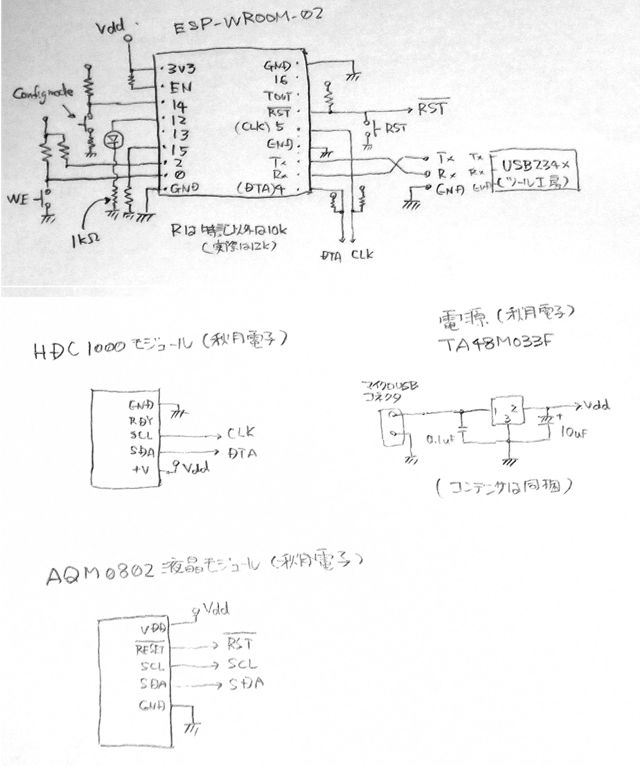 ESP-WROOM-02
Vdd
3V3
EN
14
12
13
15
2
0
GND
GND
16
TOUT
RST
(CLK) 5
GND
Tx
Rx
(DTA) 4
Configmode
WE
1kΩ
RST
RST
Tx
Rx
GND
Tx
Rx
GND
USB234x
(ツール工房)
Rは特記以外は10k
(実際は12k)
DTA CLK
HDC1000モジュール (秋月電子)
GND
RDY
SCL
SDA
+V
CLK
DTA
Vdd
電源 (秋月電子)
TA48M033F
マイクロUSB
コネクタ
1 2
3
Vdd
0.1uF
+
10uF
(コンデンサは同梱)
AQM0802 液晶モジュール (秋月電子)
VDD
RESET
SCL
SDA
GND
Vdd
RST
SCL
SDA